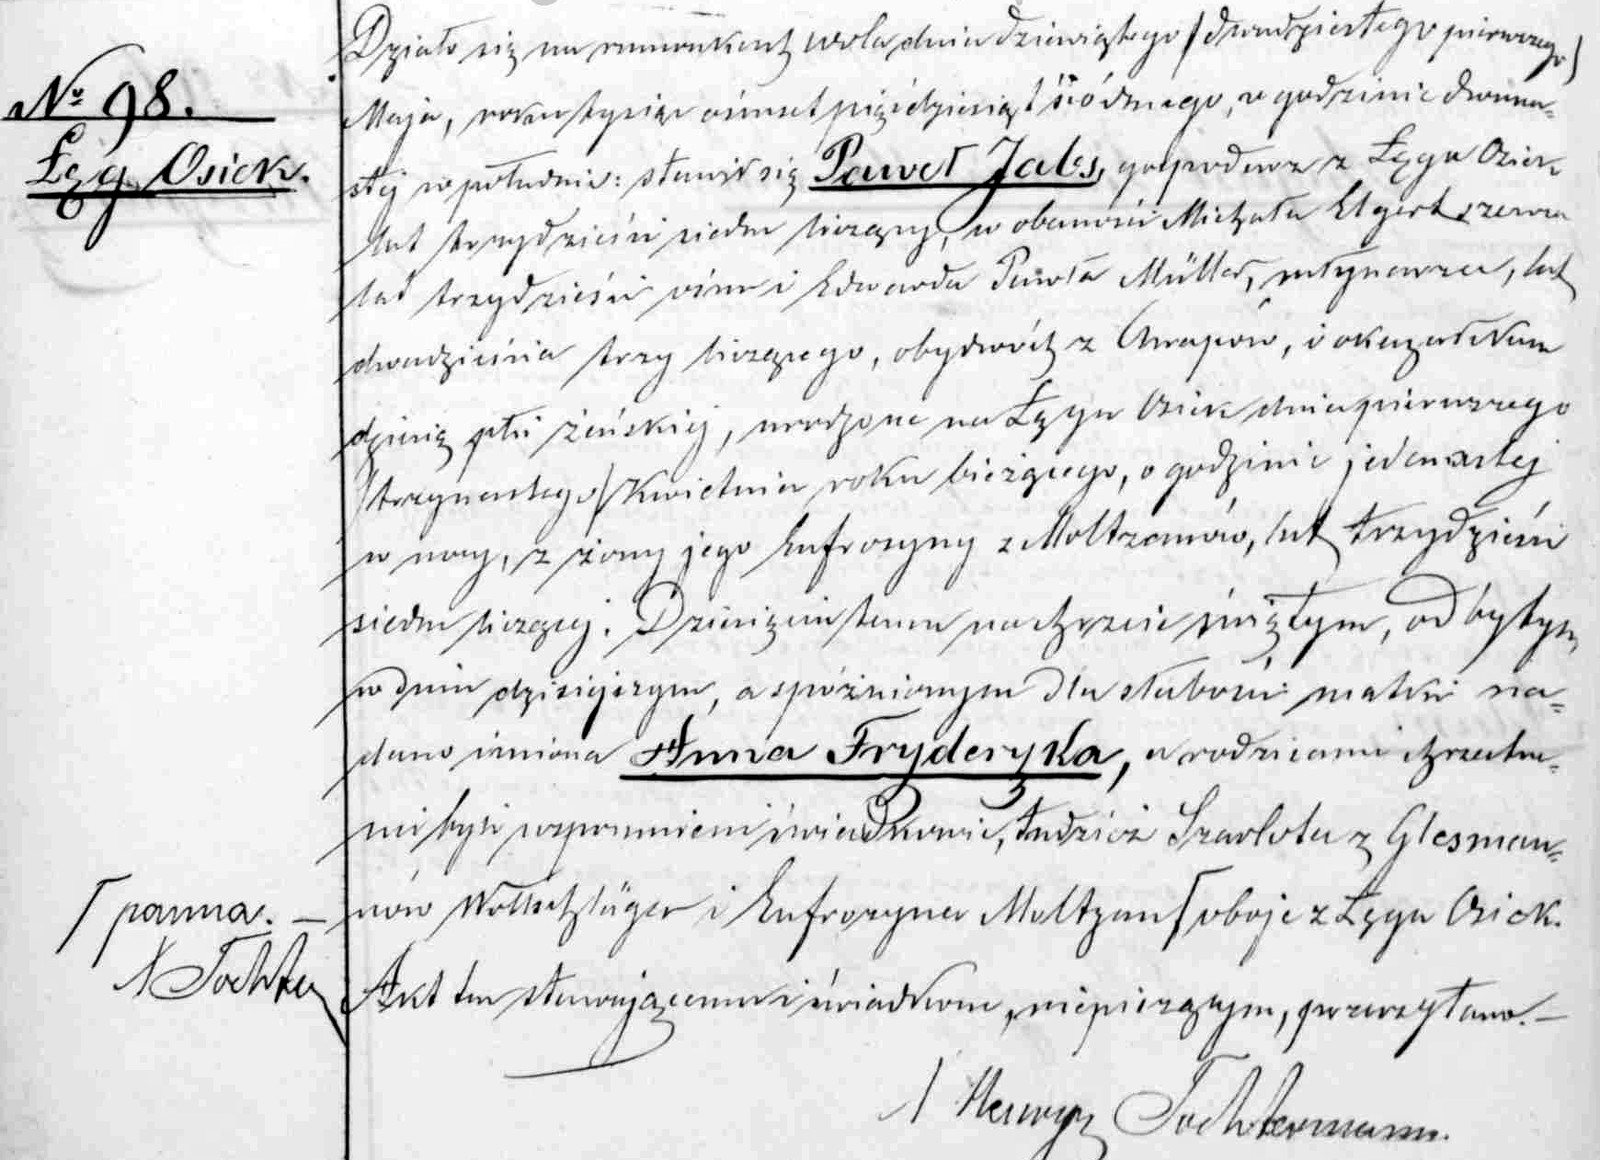 No 98.
Łęg Osiek.
Działo się na rumunkach Wola dnia dziewiątego /dwudziestego pierwszego/
Maja, roku tysiąc ośmset pięćdziesiąt siódmego, o godzinie dwuna=
stej w południe: stawił się Paweł Jabs, gospodarz z Łęgu Osiek
lat trzydzieści siedm liczący, w obecności Michała Elgert szewca
lat trzydzieści ośm i Edwarda Pawła Müller, młynarza, lat
dwadzieścia trzy liczącego, obydwóch z , i okazał Nam
dziecię płci żeńskiej, urodzone na Łęgu Osiek dnia pierwszego
/trzynastego/ Kwietnia roku bieżącego, o godzinie jedenastej
w nocy, z żony jego Eufrozyny z Moltzanów, lat trzydzieści
siedm liczącej. Dziecięciu temu na chrzcie świętym, odbytym
w dniu dzisiejszym, a spóźnionym dla słabości matki na=
dano imiona Anna Fryderyka, a rodzicami chrzestne=
mi byli wspomnieni świadkowie, tudzież Szarlota z Glesman=
nów Wollschläger i Eufrozyna Moltzan ⌈oboje z Łęgu Osiek.
⌈ panna. —
Tochter
Akt ten stawającemu i świadkom, niepiszącym, przeczytano. —
Tochtermann.